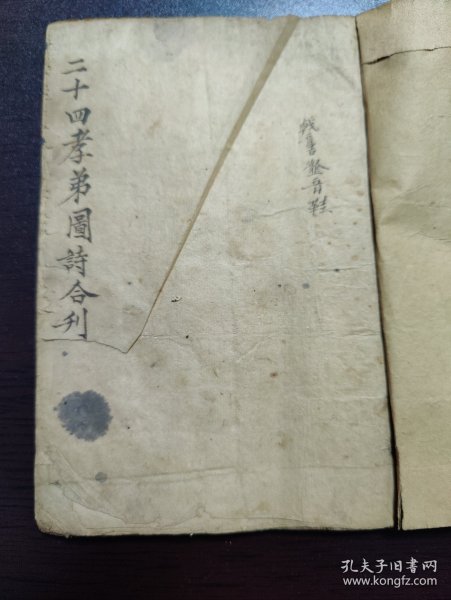 二十四孝弟圖詩合刋
孔夫子旧书网
www.kongfz.com